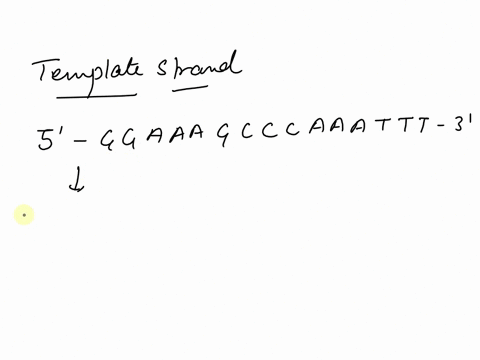 Template strand
5' - GGAAAGCCCAAATTT - 3'